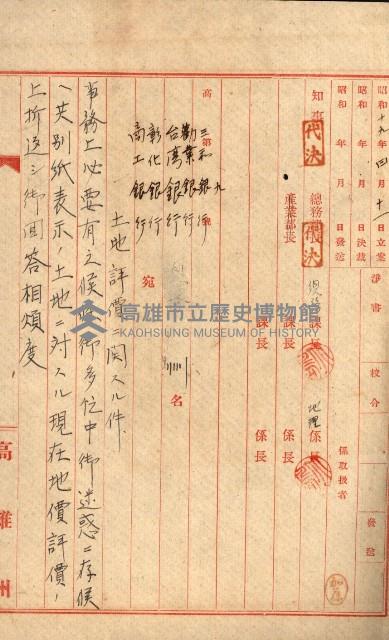 昭和十九年四月十日立案
昭和 年 月 日決裁
昭和 年 月 日發送
淨書
校合
發送
知事
代決
總務部長
代決
產業部長
課長
課長
課長
地理係長
係長
係長
係取扱者
高 第 號
三和銀行
勸業銀行
台灣銀行
彰化銀行
商工銀行
宛
州名
土地評價ニ関スル件
事務上必要有之候條御多忙中御迷惑ニ存候
ヘ共別紙表示ノ土地ニ対スル現在地價評價ノ
上折返シ御回答相煩度
高雄州
高雄市立歷史博物館
KAOHSIUNG MUSEUM OF HISTORY